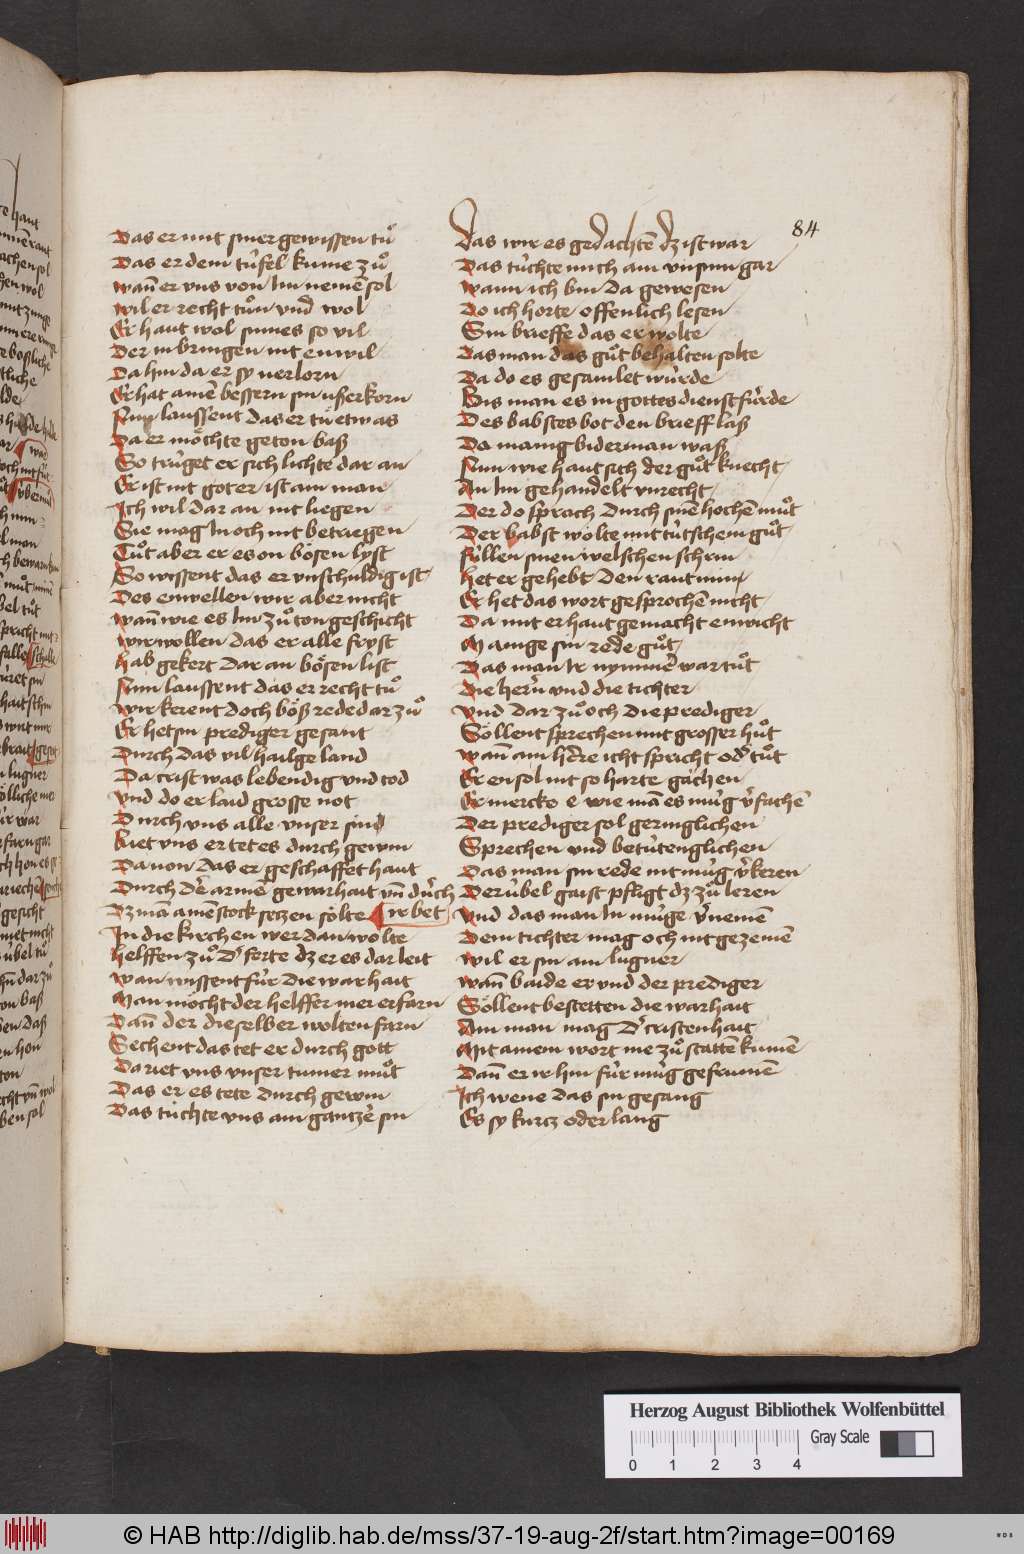 84
Das er mit siner gewissen tuͦ
Das er dem túfel kume zuͦ
wañ er vns von Im nemē sol
wil er recht tuͦn vnd wol
Er haut wol sinnes so vil
Der in bringen nit enwil
Da hin da er sy verlorn
Er hat ainē bessern sin usserkorn
Nun laussent das er tuͤ etwas
Da er möchte geton baß
So trúget er sich lichte dar an
Er ist nit got er ist ain man
Ich wil dar an nit liegen
Sie mag In och nit betriegen
Tuͦt aber er es on bösen lyst
So wissent das er vnschuldig ist
Des enwellen wir aber nicht
wañ wie es Im zuͦ ton geschicht
wir wollen das er alle fryst
hab gekert dar an bösen list
Nun laussent das er recht tuͦ
wir kerent doch böß rede dar zuͦ
Er het sin prediger gesant
Durch das vil hailge land
Da crist was lebendig vnd tod
Vnd do er laid grosse not
Durch vns alle vnser sind
Riet vns er tet es durch gewin
Da von das er geschaffet haut
Durch dē armē gewarhait vñ dúrch
Dz mā ainē stock setzen sölte ir bet
In die kirchen wer dan wolte
helffen zuͦ dʼ ferte dz er es dar leit
wan wissent fúr die warhait
Man möcht der helffer mer erfarn
Dañ der die selber wolten farn
Sechent das tet er durch gott
Da riet vns vnser tumer muͦt
Das er es tete durch gewin
Das tuchte vns ain gantzē sin
Das wir es gedachtē dz ist war
Das túchte mich ain vnsinn gar
wann ich bin da gewesen
Do ich horte offenlich lesen
Sin brieffe das er wolte
Das man das guͦt behalten solte
Da do es gesamlet wúrde
Bis man es in gottes dienst fúrde
Des babstes bot den brieff laß
Da manig biderman waß
Nun wie haut sich der guͦt knecht
An Im gehandelt vnrecht
Der do sprach durch sinē hochē muͦt
Der babst wolte mit tútschem guͦt
Fúllen sinen welschen schrin
het er gehebt den raut min
Er het das wort gesprochē nicht
Da mit er haut gemacht enwicht
Mainge sin rede guͦt
Das man Ir nymmē war tuͦt
Die herrn vnd die tichter
Vnd dar zuͦ och die prediger
Söllent sprechen mit grosser huͦt
wañ ain hʼre icht spricht odʼ tuͦt
Er en sol nit so harte gachen
Er mercke e wie mā es múg vʼfachē
Der prediger sol geringlichen
Sprechen vnd betútenglichen
Das man sin rede nit múg vʼkeren
Der úbel gaist pfligt dz zuͦ leren
Vnd das man In múge vʼnemē
Dem tichter mag och nit gezemē
wil er sin ain lugner
wañ baide er vnd der prediger
Söllent bestetten die warhait
Ain man mag dʼ cristenhait
Mit ainem wort me zuͦ statten kumē
Dañ er ir hin fúr múg gefrumē
Ich wene das sin gesang
Es sy kurcz oder lang
Herzog August Bibliothek Wolfenbüttel
Gray Scale
0 1 2 3 4
© HAB http://diglib.hab.de/mss/37-19-aug-2f/start.htm?image=00169